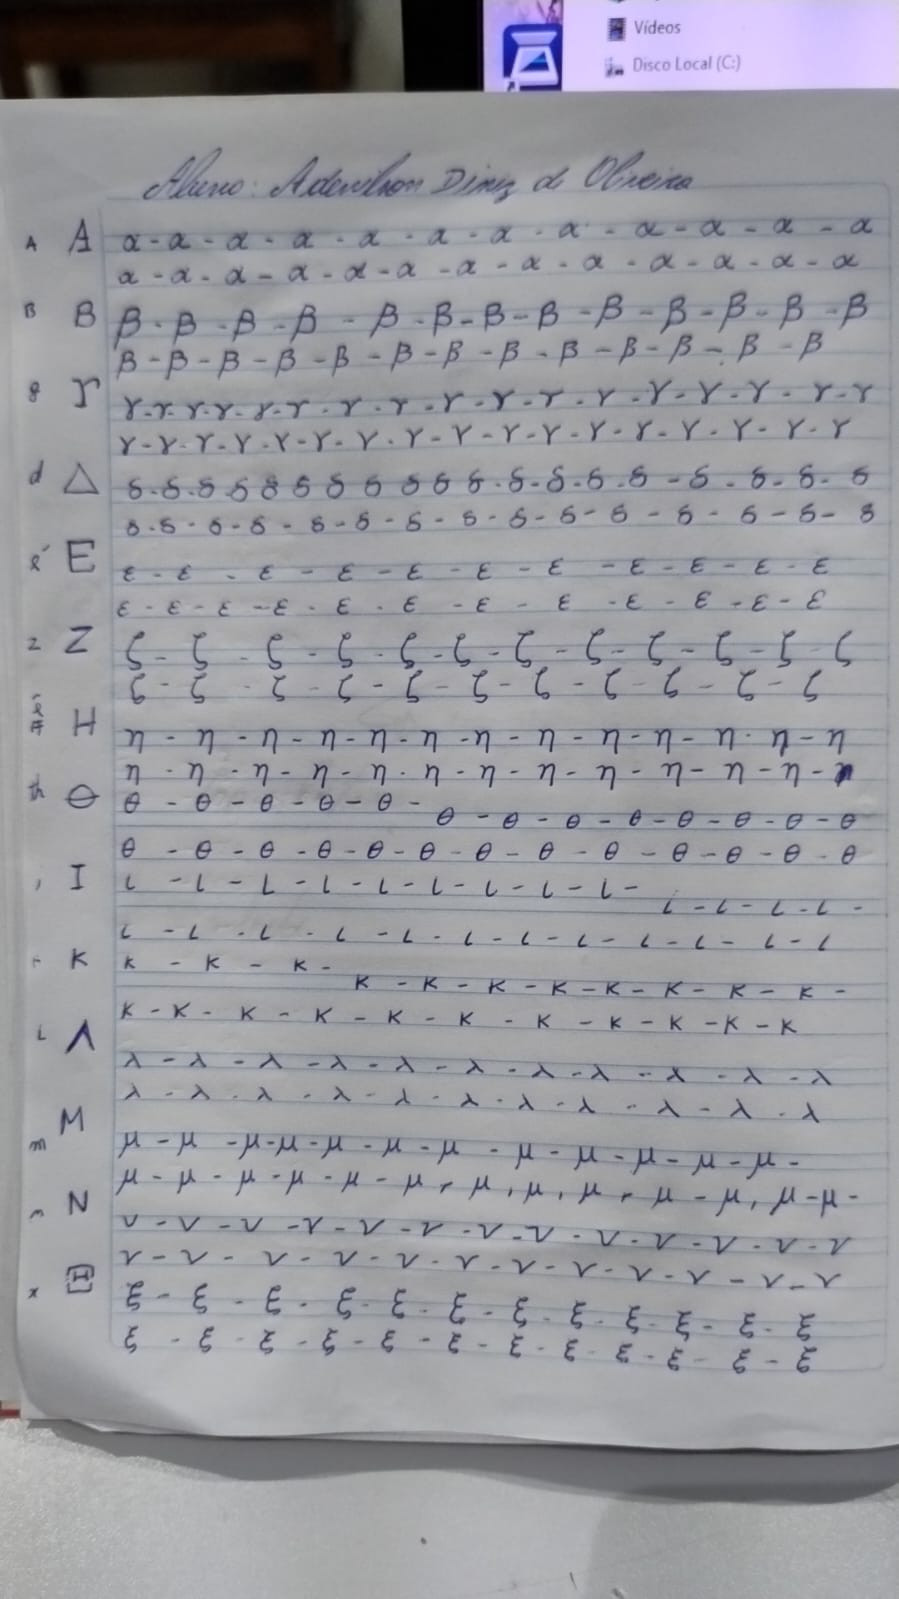 Vídeos
Disco Local (C:)
Aluno: Adenilson Diniz de Oliveira
A A α - α - α - α - α - α - α - α - α - α - α - α
α - α - α - α - α - α - α - α - α - α - α - α - α
B B β - β - β - β - β - β - β - β - β - β - β - β - β
β - β - β - β - β - β - β - β - β - β - β - β - β
g Γ γ - γ - γ - γ - γ - γ - γ - γ - γ - γ - γ - γ - γ - γ - γ - γ - γ
γ - γ - γ - γ - γ - γ - γ - γ - γ - γ - γ - γ - γ - γ - γ - γ - γ
d Δ δ - δ - δ - δ δ δ δ δ δ δ δ - δ - δ - δ - δ - δ - δ - δ - δ
δ - δ - δ - δ - δ - δ - δ - δ - δ - δ - δ - δ - δ - δ - δ
é E ε - ε - ε - ε - ε - ε - ε - ε - ε - ε - ε
ε - ε - ε - ε - ε - ε - ε - ε - ε - ε - ε - ε
z Z ζ - ζ - ζ - ζ - ζ - ζ - ζ - ζ - ζ - ζ - ζ - ζ
ζ - ζ - ζ - ζ - ζ - ζ - ζ - ζ - ζ - ζ - ζ
H η - η - η - η - η - η - η - η - η - η - η - η - η
η - η - η - η - η - η - η - η - η - η - η - η - η
th Θ θ - θ - θ - θ - θ - θ - θ - θ - θ - θ - θ - θ - θ
θ - θ - θ - θ - θ - θ - θ - θ - θ - θ - θ - θ - θ
I ι - ι - ι - ι - ι - ι - ι - ι - ι - ι - ι - ι - ι -
ι - ι - ι - ι - ι - ι - ι - ι - ι - ι - ι - ι
K κ - κ - κ - κ - κ - κ - κ - κ - κ - κ - κ -
κ - κ - κ - κ - κ - κ - κ - κ - κ - κ - κ
L Λ λ - λ - λ - λ - λ - λ - λ - λ - λ - λ - λ
λ - λ - λ - λ - λ - λ - λ - λ - λ - λ - λ
m M μ - μ - μ - μ - μ - μ - μ - μ - μ - μ - μ - μ -
μ - μ - μ - μ - μ - μ - μ - μ - μ - μ - μ - μ - μ -
n N ν - ν - ν - ν - ν - ν - ν - ν - ν - ν - ν - ν - ν
ν - ν - ν - ν - ν - ν - ν - ν - ν - ν - ν - ν
x Ξ ξ - ξ - ξ - ξ - ξ - ξ - ξ - ξ - ξ - ξ - ξ - ξ
ξ - ξ - ξ - ξ - ξ - ξ - ξ - ξ - ξ - ξ - ξ - ξ